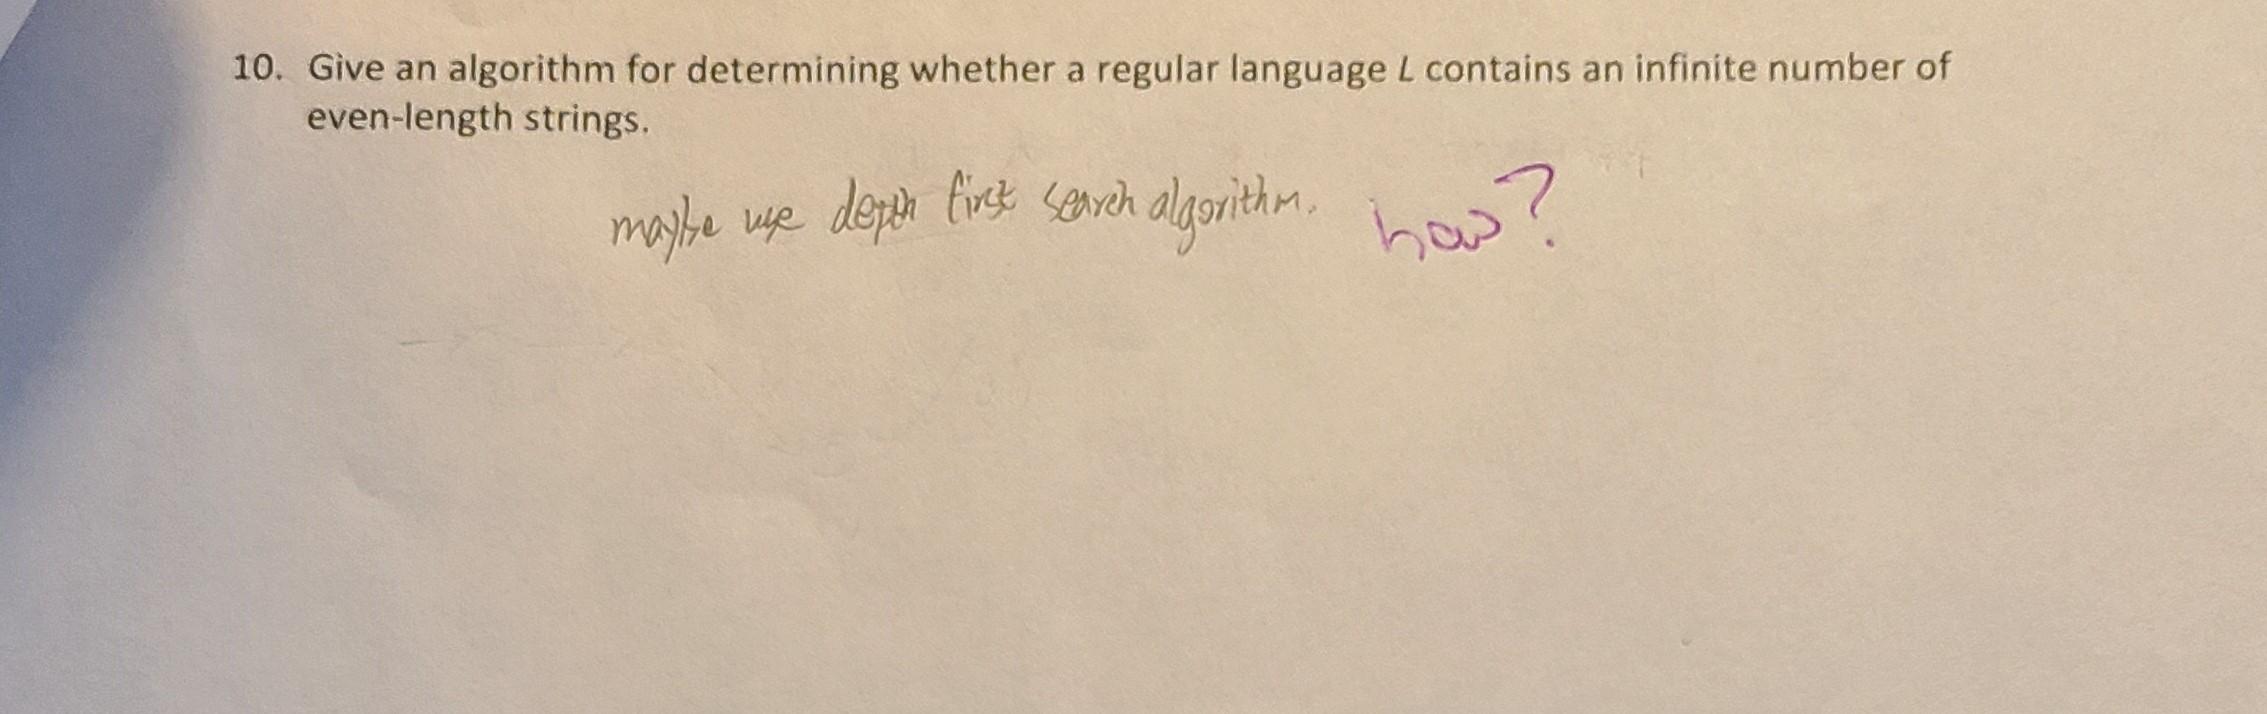 10. Give an algorithm for determining whether a regular language L contains an infinite number of
even-length strings.
maybe use depth first search algorithm. how?